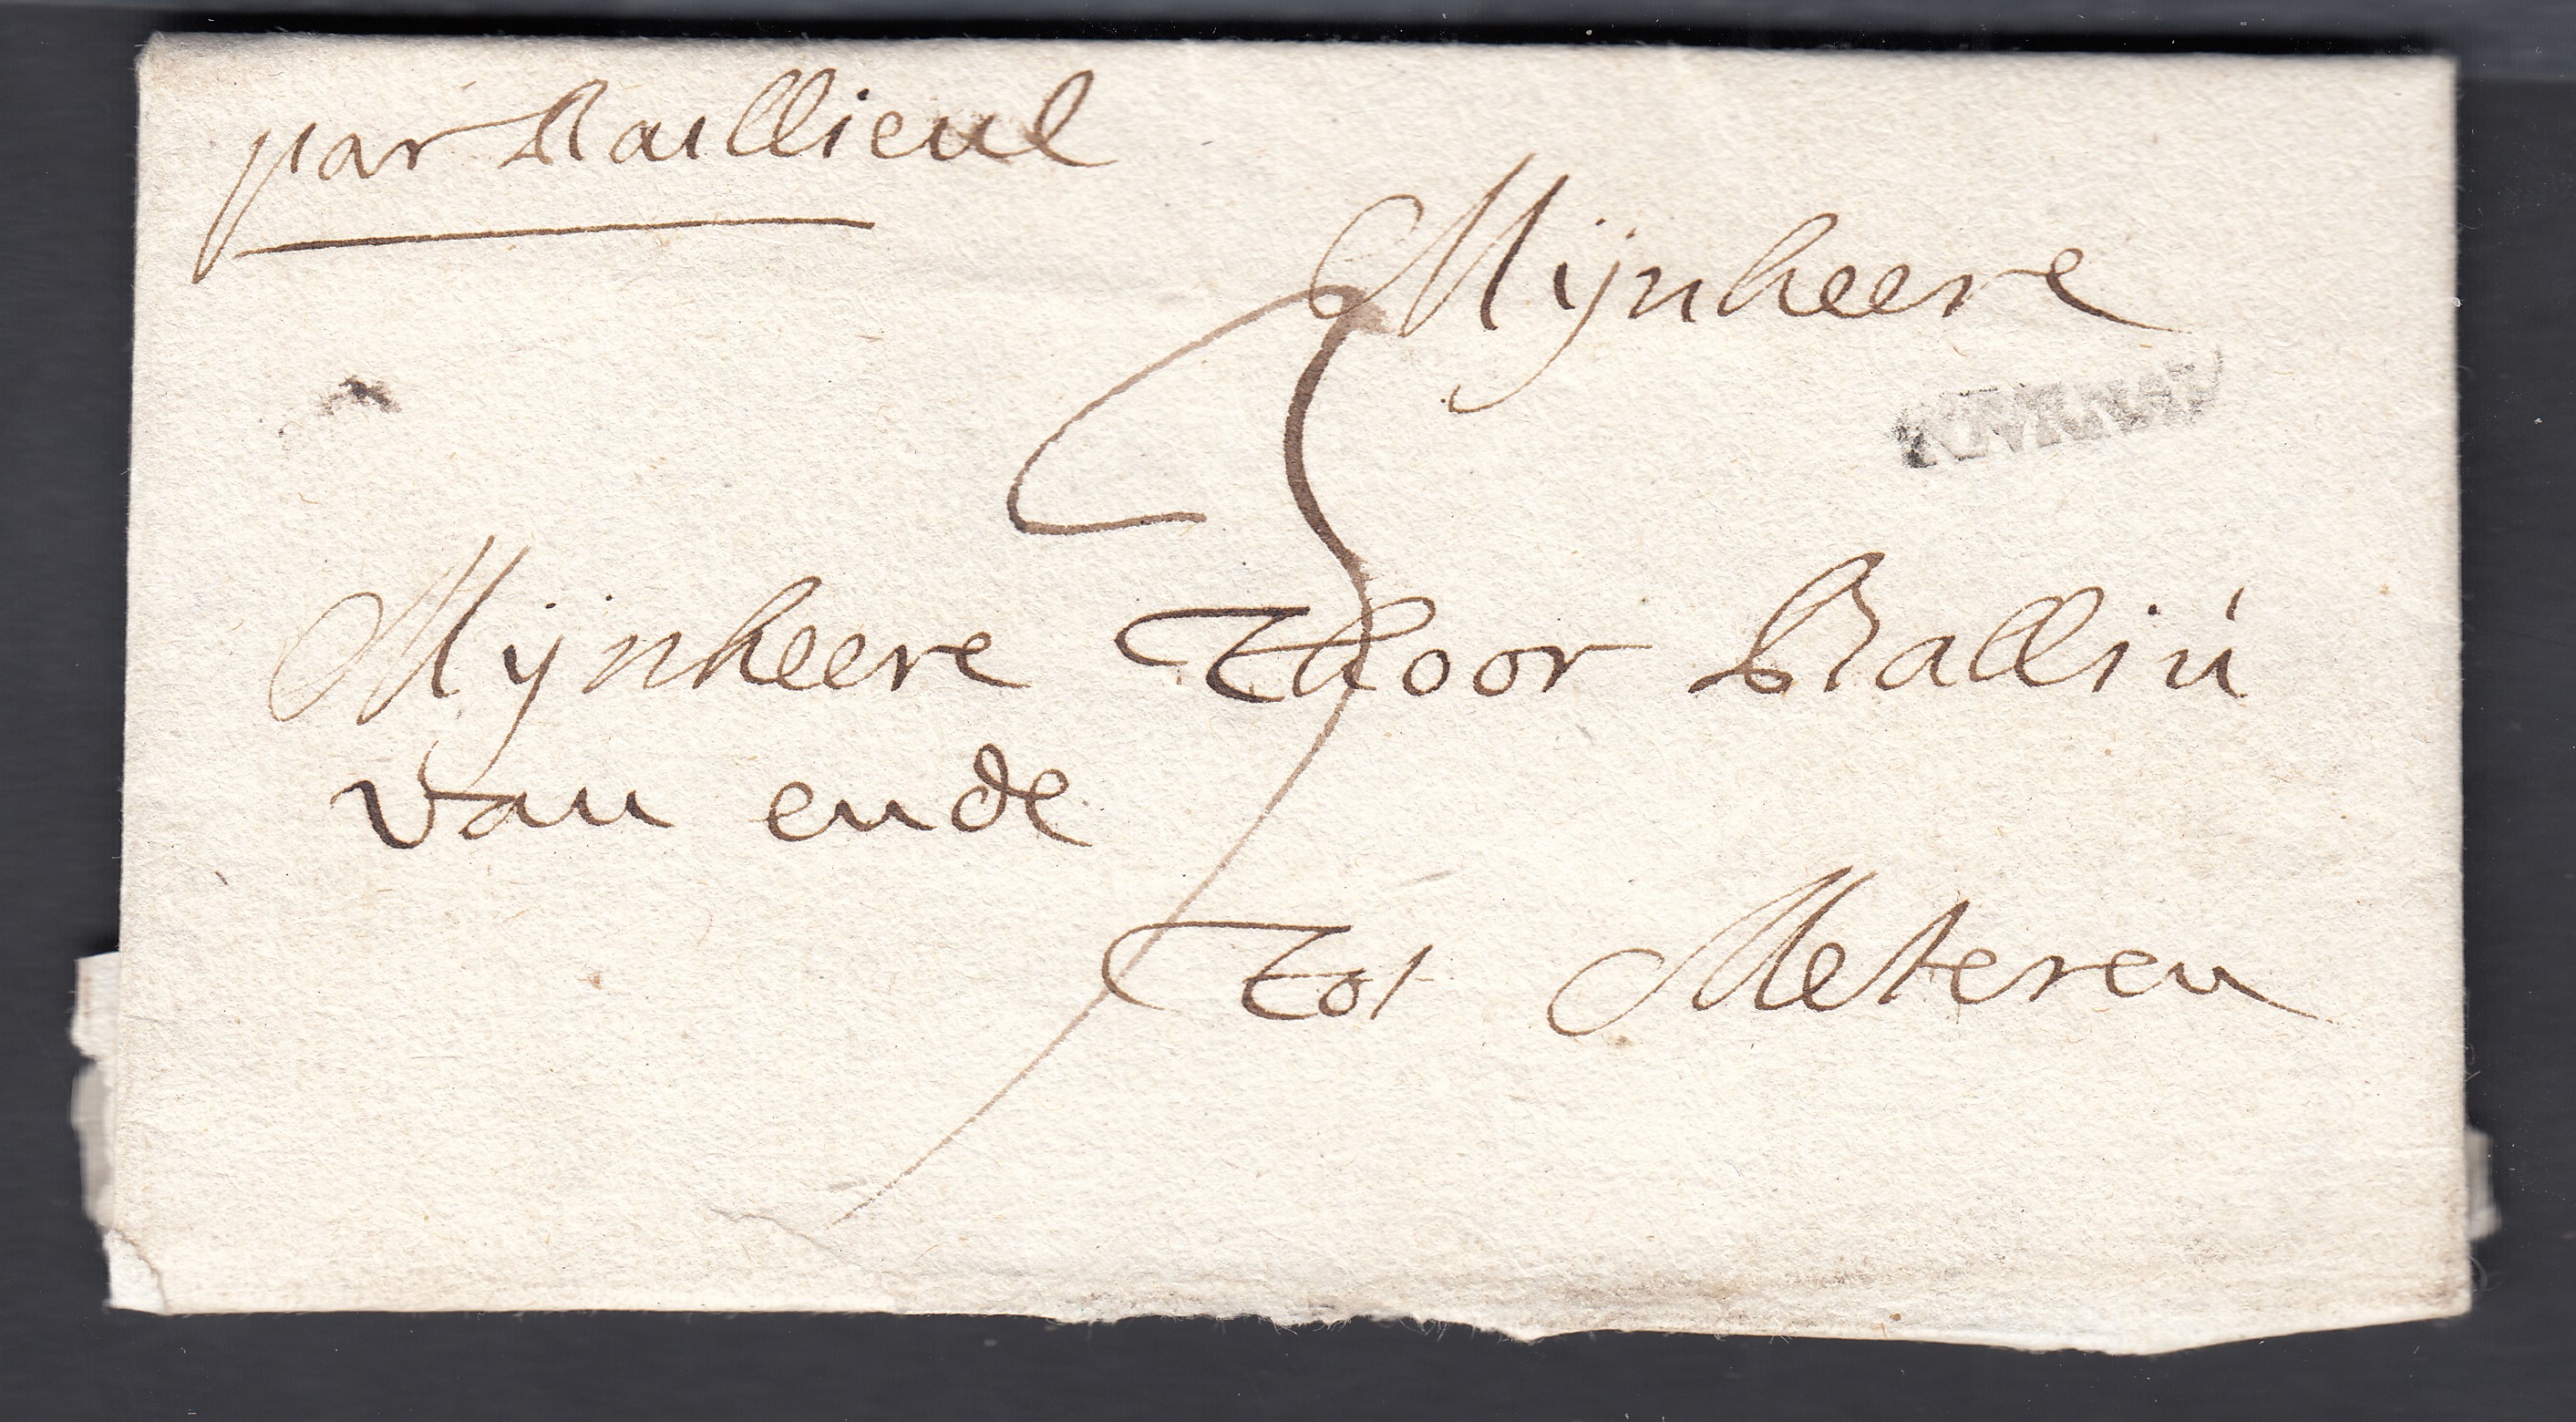 par Baillieul
Mijnheere
5
Mijnheere Thoor Balliú
van ende
Tot Meteren